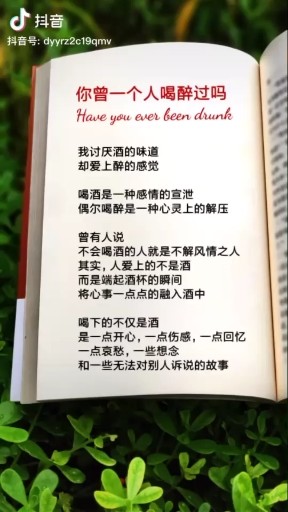 抖音
抖音号: dyyrz2c19qmv
你曾一个人喝醉过吗
Have you ever been drunk
我讨厌酒的味道
却爱上醉的感觉
喝酒是一种感情的宣泄
偶尔喝醉是一种心灵上的解压
曾有人说
不会喝酒的人就是不解风情之人
其实，人爱上的不是酒
而是端起酒杯的瞬间
将心事一点点的融入酒中
喝下的不仅是酒
是一点开心，一点伤感，一点回忆
一点哀愁，一些想念
和一些无法对别人诉说的故事